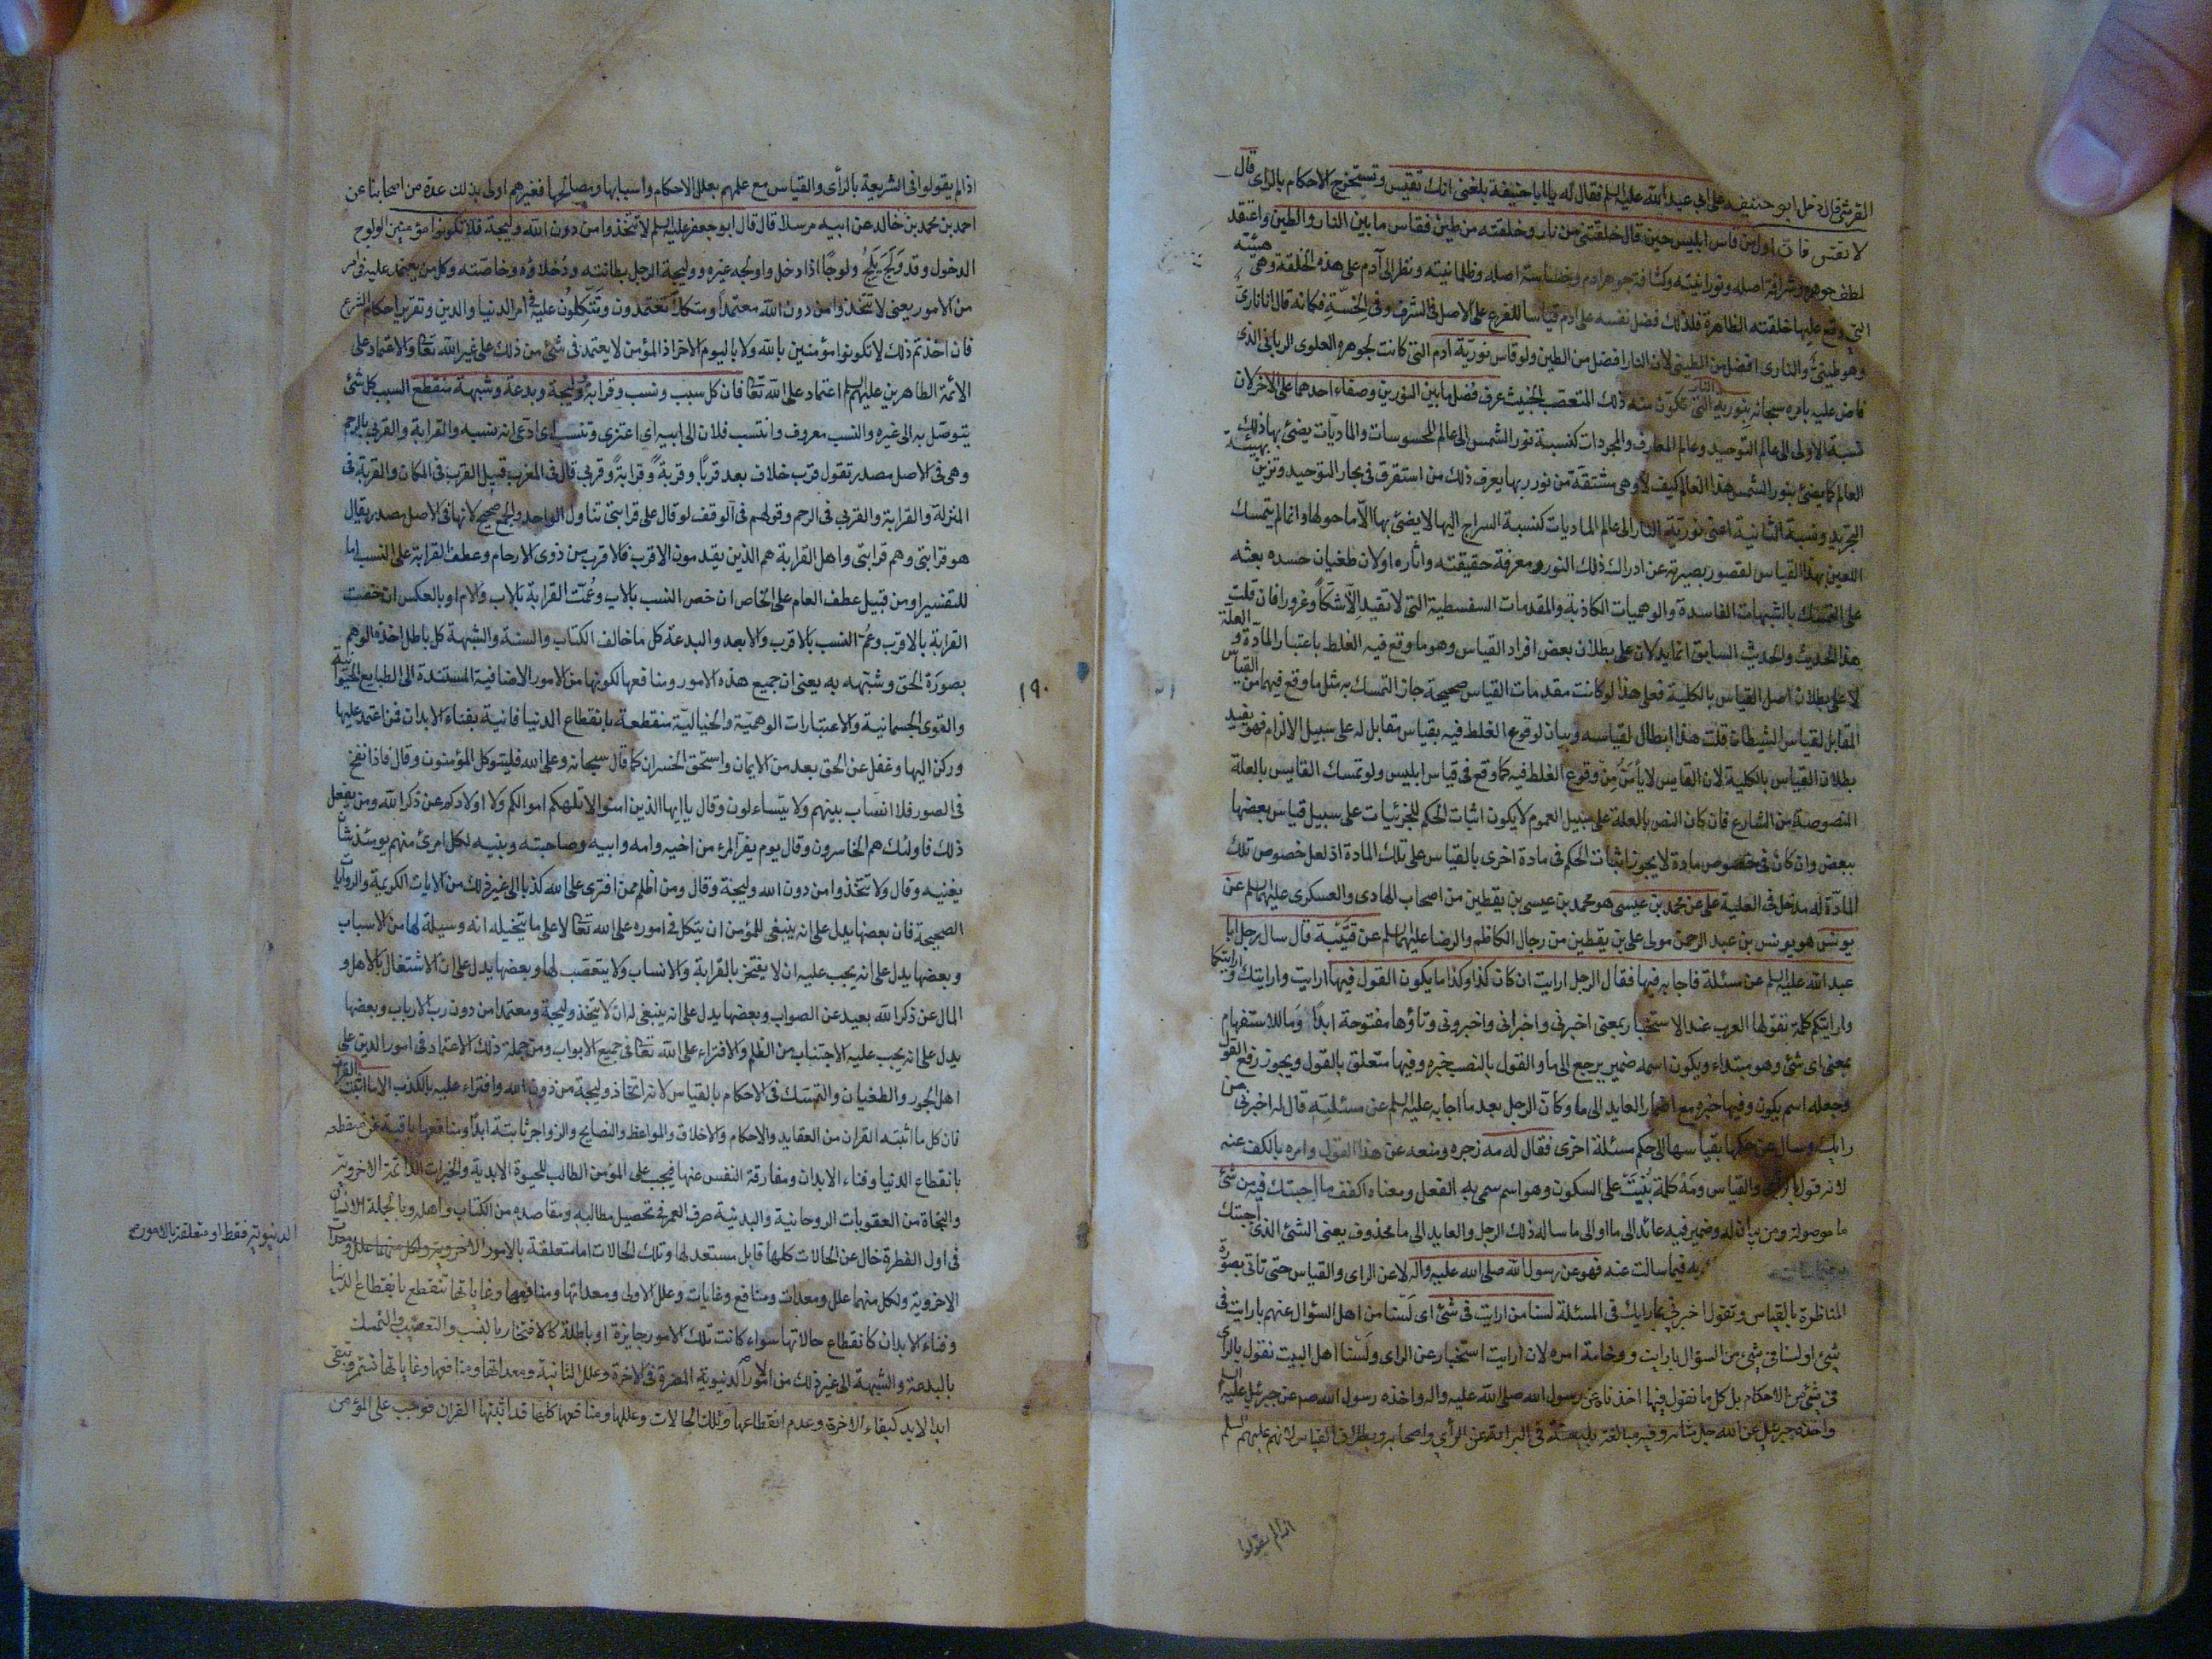 القرشى قال دخل ابو حنيفة على ابى عبد الله عليه السلم فقال له يا ابا حنيفة بلغنى انك تقيس وتستخرج الاحكام بالراى قال
لا تقس فان اول من قاس ابليس حين قال خلقتنى من نار وخلقته من طين فقاس ما بين النار والطين واعتقد
لطف جوهره وشرافة اصله ونورانيته وكثافة جوهر ادم وخساسة اصله وظلمانيته ونظر الى آدم على هذه الخلقة وهى هيئته
التى وقع عليها خلقته الظاهرة فلذلك فضل نفسه على ادم قياسا للفرع على الاصل فى الشرف وفى الخسّة فكانه قال انا نارى
وهو طينىّ والنارى افضل من الطينى لان النار افضل من الطين ولو قاس نورية ادم التى كانت لجوهره العلوى الربانى الذى
فاض عليه بامره سبحانه بنورية النار التى تكوّن منه ذلك المتعصب الخبيث عرف فضل ما بين النورين وصفاء احدهما على الاخر لان
نسبة الاولى الى عالم التوحيد وعالم المعارف والمجردات كنسبة نور الشمس الى عالم المحسوسات والماديات يضئ بها ذلك
العالم كما يضئ بنور الشمس هذا العالم كيف لا وهى مشتقة من نور ربها يعرف ذلك من استغرق فى بحار التوحيد وتزين بهيئة
التجريد ونسبة الثانية اعنى نورية النار الى عالم الماديات كنسبة السراج اليها لا يضئ بها الّا ما حولها وانما لم يتمسك
اللعين بهذا القياس لقصور بصيرته عن ادراك ذلك النور ومعرفة حقيقته واثاره او لان طغيان حسده بعثه
على التمسك بالشبهات الفاسدة والوهميات الكاذبة والمقدمات السفسطية التى لا تفيد الّا شكّاً وغرورا فان قلت
هذا الحديث والحديث السابق انما يدلان على بطلان بعض افراد القياس وهو ما وقع فيه الغلط باعتبار المادّة و العلّة
لا على بطلان اصل القياس بالكلية فعلى هذا لو كانت مقدمات القياس صحيحة جاز التمسك به مثل ما وقع فيهما من القياس
المقابل لقياس الشيطان قلت هذا ابطال لقياسه وبيان لوقوع الغلط فيه بقياس مقابل له على سبيل الالزام فهو يفيد
بطلان القياس بالكلية لان القايس لا يأمَنُ مِنْ وقوع الغلط فيه كما وقع فى قياس ابليس ولو تمسك القايس بالعلة
المنصوصة من الشارع فان كان النص بالعلة على سبيل العموم لا يكون اثبات الحكم للجزئيات على سبيل قياس بعضها
ببعض وان كان فى خصوص مادة لا يجوز اثبات الحكم فى مادة اخرى بالقياس على تلك المادة اذ لعل خصوص تلك
المادّة له مدخل فى العلية على عن محمد بن عيسى هو محمد بن عيسى بن يقطين من اصحاب الهادى والعسكرى عليهما السلم عن
يونس هو يونس بن عبد الرحمن مولى على بن يقطين من رجال الكاظم والرضا عليهما السلم عن قتيبة قال سال رجل ابا
عبد الله عليه السلم عن مسئلة فاجابه فيها فقال الرجل ارايت ان كان كذا وكذا ما يكون القول فيها ارايت وارايتك و ارايتكما
وارايتكم كلمة تقولها العرب عند الاستخبار بمعنى اخبرنى واخبرانى واخبرونى وتاؤها مفتوحة ابداً وما للاستفهام
بمعنى اى شئ وهو مبتداء ويكون اسمه ضمير يرجع الى ما والقول بالنصب خبره وفيها متعلق بالقول ويجوز رفع القول
وجعله اسم يكون وفيها خبره مع اضمار العايد الى ما وكانّ الرجل بعد ما اجابه عليه السلم عن مسئلته قال له اخبرنى عن
رايك وسال عن حكمها بقياسها الى حكم مسئلة اخرى فقال له مه زجره ومنعه عن هذا القول وامره بالكف عنه
لانه قول بالراى والقياس ومَهْ كلمة بُنيَتْ على السكون وهو اسم سمى به الفعل ومعناه اكفف ما اجبتك فيه من شئ
ما موصولة ومن بيان له وضمير فيه عائد الى ما او الى ما ساله ذلك الرجل والعايد الى ما محذوف يعنى الشئ الذى اجبتك
به فيما سالت عنه فهو عن رسول الله صلى الله عليه واله لا عن الراى والقياس حتى تاتى بصورة
المناظرة بالقياس وتقول اخبرنى عن رايك فى المسئلة لسنا من ارايت فى شئ اى لسنا من اهل السؤال عنهم بارايت فى
شئ او لسنا فى شئ من السؤال بارايت ووخامة امره لان ارايت استخبار عن الراى ولسنا اهل البيت نقول بالراى
فى شئ من الاحكام بل كل ما نقول فيها اخذناه عن رسول الله صلى الله عليه واله واخذه رسول الله صه عن جبرئيل عليه السلم
واخذه جبرئيل عن الله جل شانه وفيه مبالغة بليغة فى البراءة عن الرأى واصحابه وبطلان القياس لانهم عليهم السلم
اذا لم يقولوا
اذا لم يقولوا فى الشريعة بالرأى والقياس مع علمهم بعلل الاحكام واسبابها ومصالحها فغيرهم اولى بذلك عدة من اصحابنا عن
احمد بن محمد بن خالد عن ابيه مرسلا قال قال ابو جعفر عليه السلم لا تتخذوا من دون الله وليجة فلا تكونوا مؤمنين الولوج
الدخول وقد وَلَجَ يَلِجُ ولوجًا اذا دخل واولجه غيره ووليجة الرجل بطانته ودُخلاؤه وخاصّته وكل من يعتمد عليه فى امر
من الامور يعنى لا تتخذوا من دون الله معتمداً ومتكلاً تعتمدون وتَتّكِلُون عليه فى امر الدنيا والدين وتقرير احكام الشرع
فان اخذتم ذلك لا تكونوا مؤمنين بالله ولا باليوم الاخر اذ المؤمن لا يعتمد فى شئ من ذلك على غير الله تعا والاعتماد على
الائمة الطاهرين عليهم السلم اعتماد على الله تعا فان كل سبب ونسب وقرابة ووليجة وبدعة وشبهة منقطع السبب كل شئ
يتوصّل به الى غيره والنسب معروف وانتسب فلان الى ابيه اى اعتزى وتنسب اى ادّعى انه نسيبه والقرابة والقربى بالرحم
وهى فى الاصل مصدر تقول قرب خلاف بعد قربًا وقربةً وقرابةً وقربى قال فى المغرب قيل القرب فى المكان والقربة فى
المنزلة والقرابة والقربى فى الرحم وقولهم فى الوقف لو قال على قرابتى تناول الواحد والجمع صحيح لانها فى الاصل مصدر يقال
هو قرابتى وهم قرابتى واهل القرابة هم الذين يقدمون الاقرب فالاقرب من ذوى الارحام وعطف القرابة على النسب اما
للتفسير او من قبيل عطف العام على الخاص ان خص النسب بالاب وعُمّت القرابة بالاب والام او بالعكس ان خصت
القرابة بالاقرب وعُمّ النسب بالاقرب والابعد والبدعة كل ما خالف الكتاب والسنة والشبهة كل باطل اخذه الوهم
بصورة الحق وشبّهه به يعنى ان جميع هذه الامور ومنافعها لكونها من الامور الاضافية المستندة الى الطبايع الحيوانية
١٩٠
والقوى الجسمانية والاعتبارات الوهميّة والخياليّة منقطعة بانقطاع الدنيا فانية بفناء الابدان فمن اعتمد عليها
وركن اليها وغفل عن الحق بعد من الايمان واستحق الخسران كما قال سبحانه وعلى الله فليتوكل المؤمنون وقال فاذا نفخ
فى الصور فلا انساب بينهم ولا يتساءلون وقال يا ايها الذين امنوا لا تلهكم اموالكم ولا اولادكم عن ذكر الله ومن يفعل
ذلك فاولئك هم الخاسرون وقال يوم يفر المرء من اخيه وامه وابيه وصاحبته وبنيه لكل امرئ منهم يومئذ شان
يغنيه وقال ولا تتخذوا من دون الله وليجة وقال ومن اظلم ممن افترى على الله كذبا الى غير ذلك من الايات الكريمة والروايات
الصحيحة فان بعضها يدل على انه ينبغى للمؤمن ان يتكل فى اموره على الله تعا لا على ما يتخيله انه وسيلة لها من الاسباب
وبعضها يدل على انه يجب عليه ان لا يفتخر بالقرابة والانساب ولا يتعصّب لها وبعضها يدل على ان الاشتغال بالاهل و
المال عن ذكر الله بعيد عن الصواب وبعضها يدل على انه ينبغى له ان لا يتخذ وليجة ومعتمدا من دون رب الارباب وبعضها
يدل على انه يجب عليه الاجتناب من الظلم والافتراء على الله تعا فى جميع الابواب ومن جملة ذلك الاعتماد فى امور الدين على
اهل الجور والطغيان والتمسّك فى الاحكام بالقياس لانه اتخاذ وليجة من دون الله وافتراء عليه بالكذب الا ما اثبته القران
فان كل ما اثبته القران من العقايد والاحكام والاخلاق والمواعظ والنصايح والزواجر ثابتة ابدًا ومنافعها باقية غير منقطعة
بانقطاع الدنيا وفناء الابدان ومفارقة النفس عنها فيجب على المؤمن الطالب للحيوة الابدية والخيرات الدائمة الاخروية
والنجاة من العقوبات الروحانية والبدنية صرف العمر فى تحصيل مطالبه ومقاصده من الكتاب واهله وبالجملة الانسان
فى اول الفطرة خال عن الحالات كلها قابل مستعد لها وتلك الحالات اما متعلقة بالامور الاخروية ولكل منهما علل ومعدات
الدنيوية فقط او متعلقة بالامور
الاخروية ولكل منهما علل ومعدات ومنافع وغايات وعلل الاولى ومعداتها ومنافعها وغاياتها تنقطع بانقطاع الدنيا
وفناء الابدان كانقطاع حالاتها سواء كانت تلك الامور جايزة او باطلة كالافتخار بالنسب والتعصّب والتمسك
بالبدعة والشبهة الى غير ذلك من الامور الدنيوية المضرة فى الاخرة وعلل الثانية ومعداتها ومنافعها وغاياتها تستمر وتبقى
ابد الابد كبقاء الاخرة وعدم انقطاعها وتلك الحالات وعللها ومنافعها كلها قد اثبتها القران فوجب على المؤمن